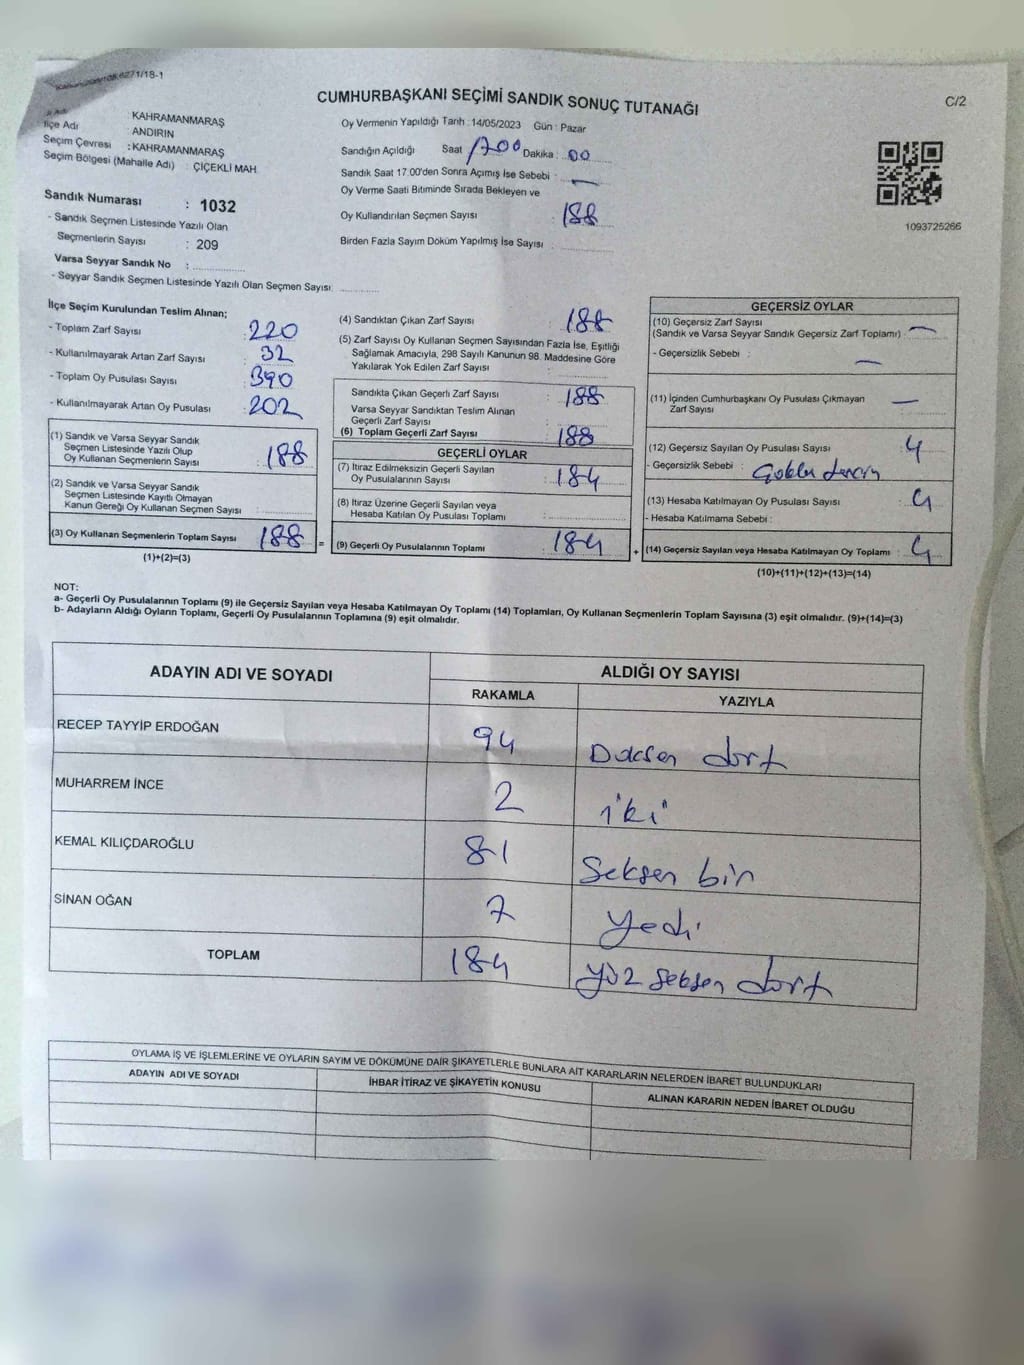 CUMHURBAŞKANI SEÇİMİ SANDIK SONUÇ TUTANAĞI
C/2
: KAHRAMANMARAŞ
İlçe Adı : ANDIRIN
Seçim Çevresi : KAHRAMANMARAŞ
Seçim Bölgesi (Mahalle Adı) : ÇİÇEKLİ MAH.
Sandık Numarası : 1032
- Sandık Seçmen Listesinde Yazılı Olan
Seçmenlerin Sayısı : 209
Varsa Seyyar Sandık No :
- Seyyar Sandık Seçmen Listesinde Yazılı Olan Seçmen Sayısı:
Oy Vermenin Yapıldığı Tarih : 14/05/2023 Gün : Pazar
Sandığın Açıldığı Saat 1700 Dakika : 00
Sandık Saat 17.00'den Sonra Açımış İse Sebebi : —
Oy Verme Saati Bitiminde Sırada Bekleyen ve
Oy Kullandırılan Seçmen Sayısı : 188
Birden Fazla Sayım Döküm Yapılmış İse Sayısı :
1093725266
İlçe Seçim Kurulundan Teslim Alınan;
- Toplam Zarf Sayısı : 220
- Kullanılmayarak Artan Zarf Sayısı : 32
- Toplam Oy Pusulası Sayısı : 390
- Kullanılmayarak Artan Oy Pusulası : 202
(1) Sandık ve Varsa Seyyar Sandık
Seçmen Listesinde Yazılı Olup
Oy Kullanan Seçmenlerin Sayısı : 188
(2) Sandık ve Varsa Seyyar Sandık
Seçmen Listesinde Kayıtlı Olmayan
Kanun Gereği Oy Kullanan Seçmen Sayısı :
(3) Oy Kullanan Seçmenlerin Toplam Sayısı 188 =
(1)+(2)=(3)
(4) Sandıktan Çıkan Zarf Sayısı : 188
(5) Zarf Sayısı Oy Kullanan Seçmen Sayısından Fazla İse, Eşitliği
Sağlamak Amacıyla, 298 Sayılı Kanunun 98. Maddesine Göre
Yakılarak Yok Edilen Zarf Sayısı :
Sandıkta Çıkan Geçerli Zarf Sayısı : 188
Varsa Seyyar Sandıktan Teslim Alınan
Geçerli Zarf Sayısı :
(6) Toplam Geçerli Zarf Sayısı : 188
GEÇERLİ OYLAR
(7) İtiraz Edilmeksizin Geçerli Sayılan
Oy Pusulalarının Sayısı : 184
(8) İtiraz Üzerine Geçerli Sayılan veya
Hesaba Katılan Oy Pusulası Toplamı :
(9) Geçerli Oy Pusulalarının Toplamı : 184 +
GEÇERSİZ OYLAR
(10) Geçersiz Zarf Sayısı
(Sandık ve Varsa Seyyar Sandık Geçersiz Zarf Toplamı) : —
- Geçersizlik Sebebi : —
(11) İçinden Cumhurbaşkanı Oy Pusulası Çıkmayan
Zarf Sayısı : —
(12) Geçersiz Sayılan Oy Pusulası Sayısı : 4
- Geçersizlik Sebebi :
(13) Hesaba Katılmayan Oy Pusulası Sayısı : 4
- Hesaba Katılmama Sebebi :
(14) Geçersiz Sayılan veya Hesaba Katılmayan Oy Toplamı : 4
(10)+(11)+(12)+(13)=(14)
NOT:
a- Geçerli Oy Pusulalarının Toplamı (9) ile Geçersiz Sayılan veya Hesaba Katılmayan Oy Toplamı (14) Toplamları, Oy Kullanan Seçmenlerin Toplam Sayısına (3) eşit olmalıdır. (9)+(14)=(3)
b- Adayların Aldığı Oyların Toplamı, Geçerli Oy Pusulalarının Toplamına (9) eşit olmalıdır.
ADAYIN ADI VE SOYADI
ALDIĞI OY SAYISI
RAKAMLA YAZIYLA
RECEP TAYYİP ERDOĞAN 94 Doksen dört
MUHARREM İNCE 2 iki
KEMAL KILIÇDAROĞLU 81 Seksen bir
SİNAN OĞAN 7 Yedi
TOPLAM 184 Yüz seksen dört
OYLAMA İŞ VE İŞLEMLERİNE VE OYLARIN SAYIM VE DÖKÜMÜNE DAİR ŞİKAYETLERLE BUNLARA AİT KARARLARIN NELERDEN İBARET BULUNDUKLARI
ADAYIN ADI VE SOYADI
İHBAR İTİRAZ VE ŞİKAYETİN KONUSU
ALINAN KARARIN NEDEN İBARET OLDUĞU